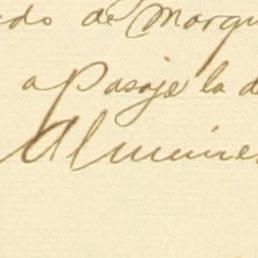 do de Marqu
a Pasaje la d
Almire